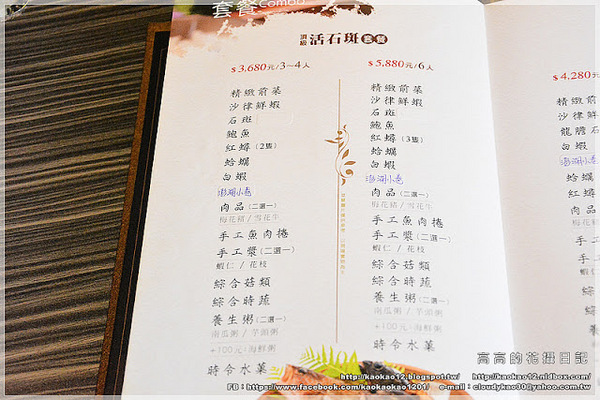 套餐Combo
頂級 活石斑 套餐
$3,680元/3~4人
精緻前菜
沙律鮮蝦
石斑
鮑魚
紅蟳(2隻)
蛤蠣
白蝦
澎湖小卷
肉品(二選一)
梅花豬/雪花牛
手工魚肉捲
手工漿(二選一)
蝦仁/花枝
綜合菇類
綜合時蔬
養生粥(二選一)
南瓜粥/芋頭粥
+100元/海鮮粥
時令水菓
$5,880元/6人
精緻前菜
沙律鮮蝦
石斑
鮑魚
紅蟳(3隻)
蛤蠣
白蝦
澎湖小卷
肉品(二選一)
梅花豬/雪花牛
手工魚肉捲
手工漿(二選一)
蝦仁/花枝
綜合菇類
綜合時蔬
養生粥(二選一)
南瓜粥/芋頭粥
+100元/海鮮粥
時令水菓
$4,280元
精緻前菜
沙律鮮
龍膽石
澎湖小卷
蛤蠣
紅蟳
白蝦
肉品
手工
手工
綜合
綜合
養生
時令
高高的花攝日記
http://kaokao12.blogspot.tw/ http://kaokao12.nidbox.com/
FB:https://www.facebook.com/kaokaokao1201/ e-mail:cloudykao30@yahoo.com.tw